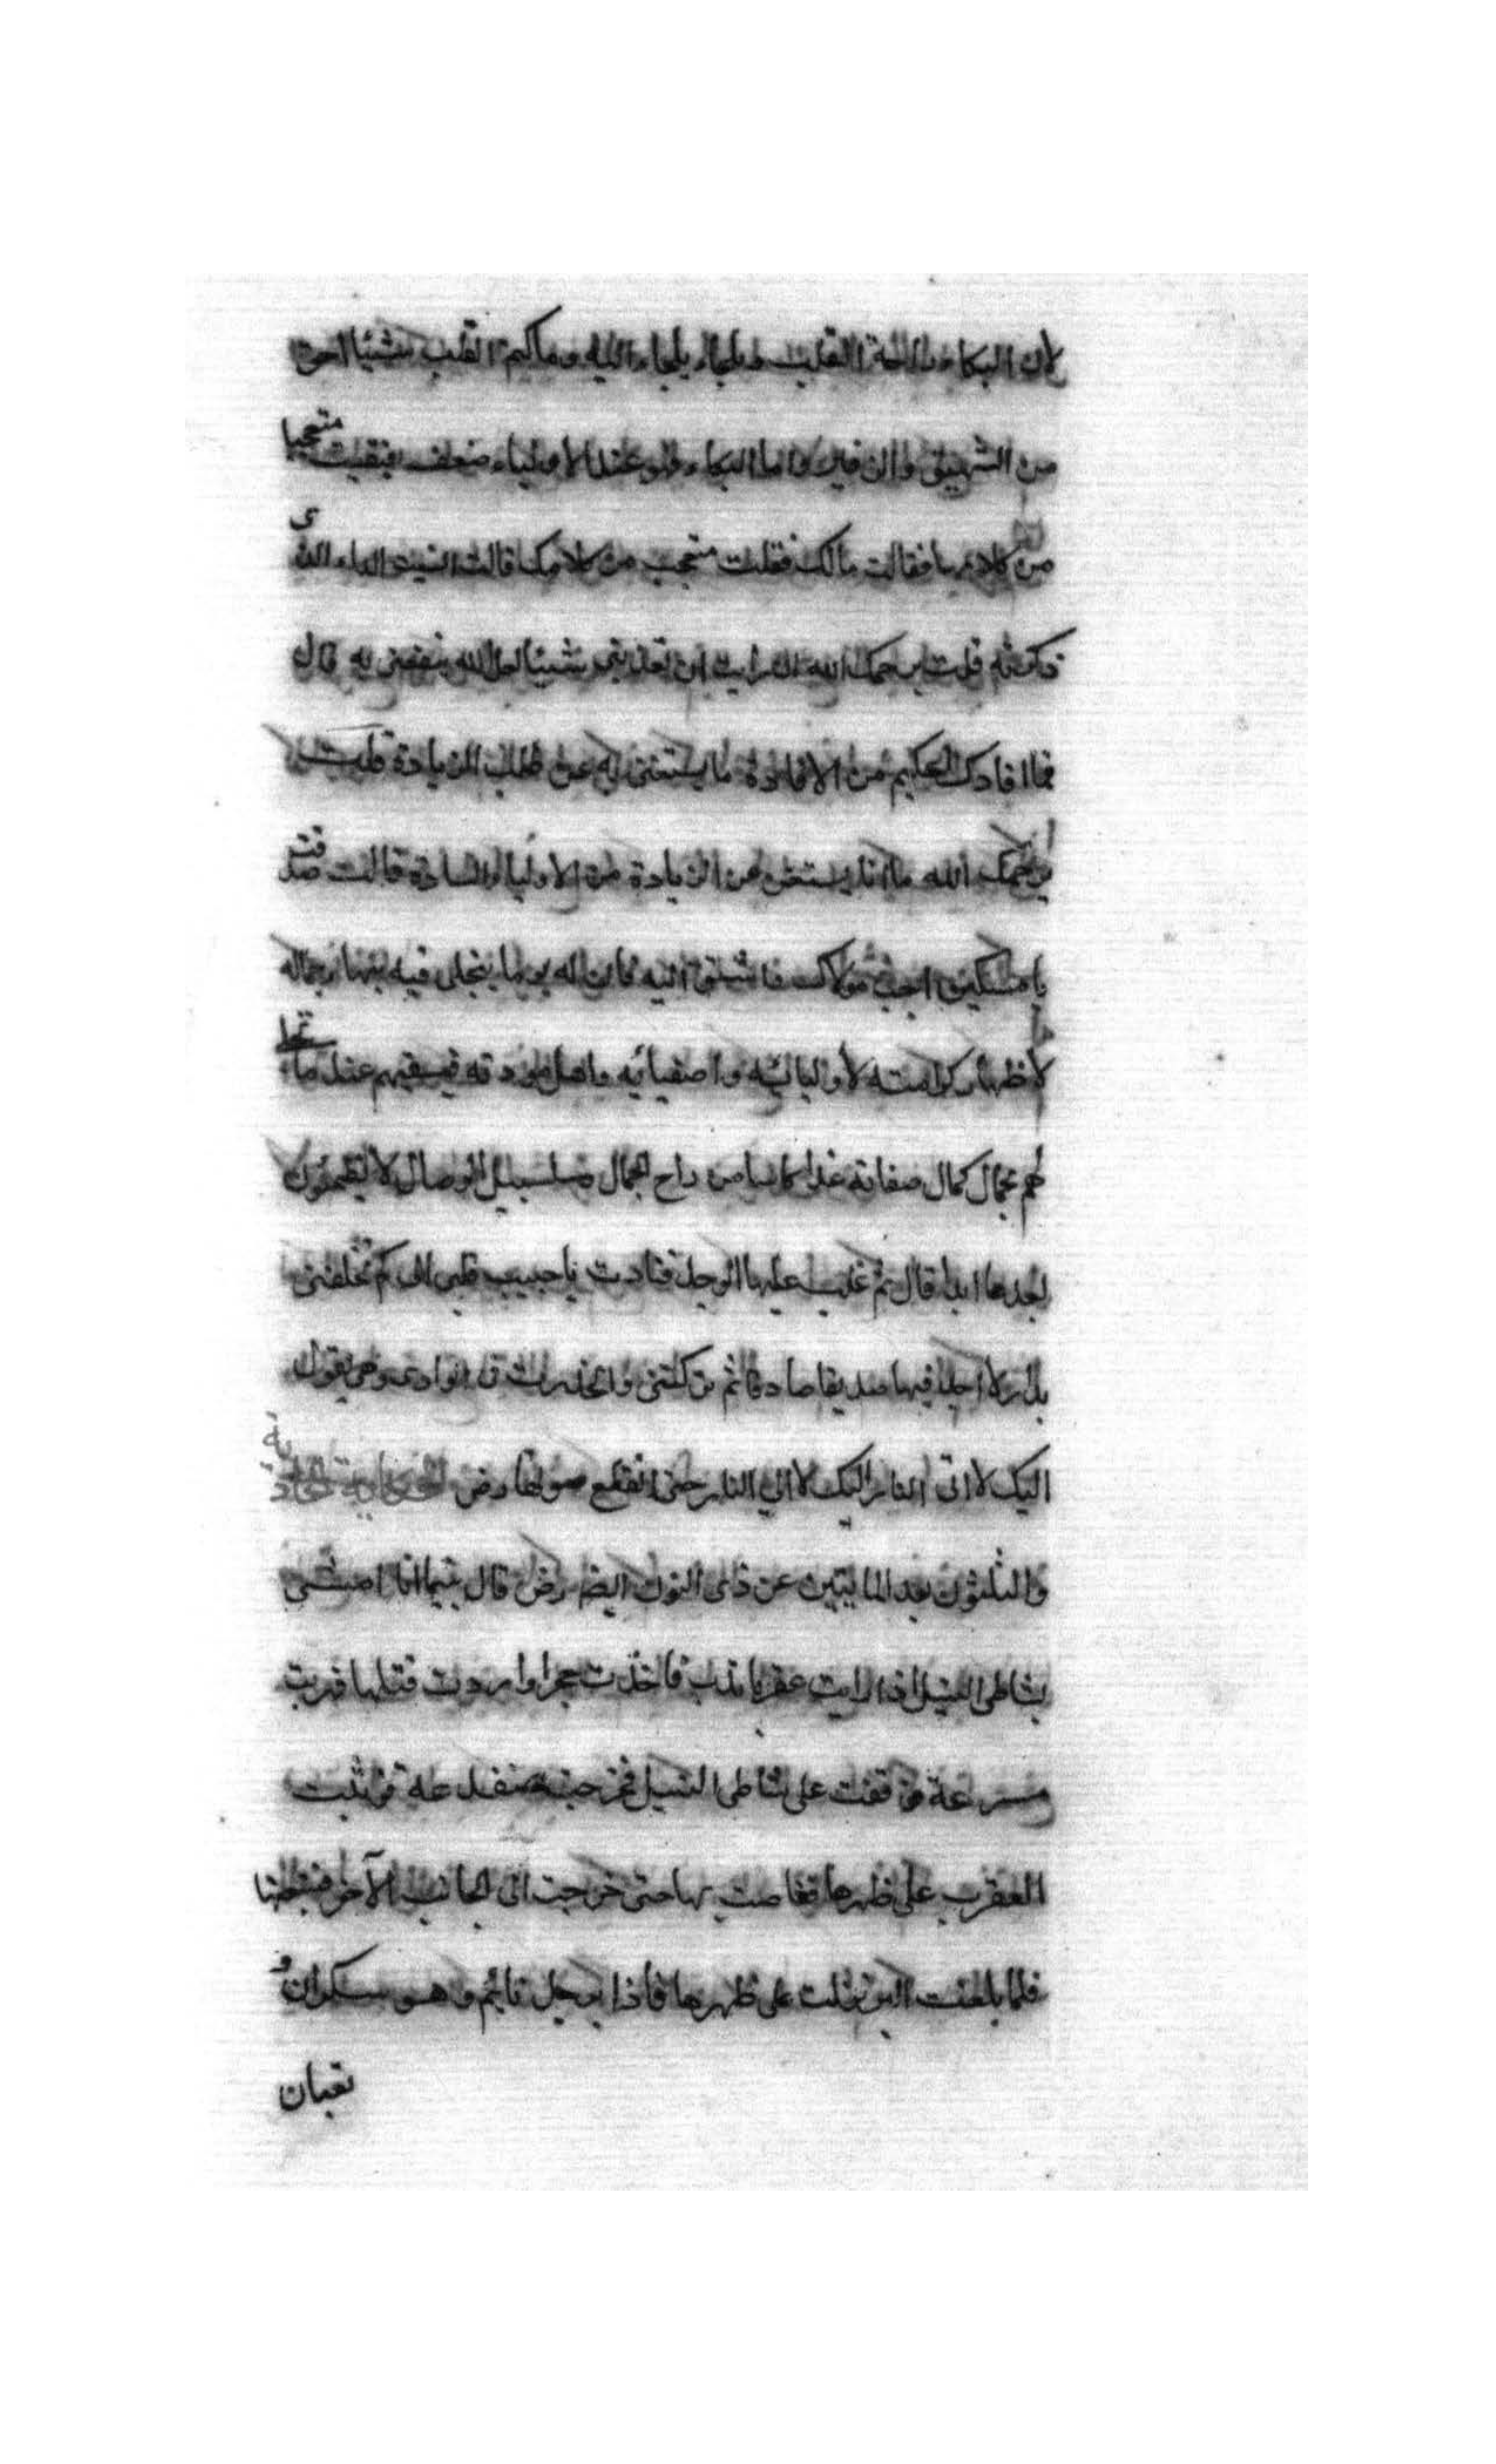 لان البكاء راحة القلب وملجاء يلجاء اليه وما كتم القلب شيئا احق
من الشهيق والزفير واما البكاء فهو عند الاولياء ضعف فبقيت متعجبا
من كلامها فقالت مالك فقلت متعجب من كلامك قالت انسيت الداء الذى
ذكرته قلت يرحمك الله ان رايت ان تفيديني شيئا لعل الله ينفعنى به قال
فما افادك الحكيم من الافادة ما يستغنى به عن طلب الزيادة قلت لا
يرحمك الله ما انا بمستغن عن الزيادة من الاولياء السادة قالت صدقت
يا مسكين احب مولاك فاشتق اليه فان له يوما يتجلى فيه ببهاء جماله
لاظهار كرامته لاوليائه واصفيائه واهل مودته فيسقيهم عند ما تجلى
لهم بجمال كمال صفاته غدا كاسا من راح الجمال وسلسبيل الوصال لا يظمؤن
بعدها ابدا قال ثم غلب عليها الوجد فنادت يا حبيب قلبى الى كم تخلفنى
بدار لا اجد فيها صديقا صادقا ثم تركتنى وانحدرت فى الوادى وهى يقول
اليك لا الى النار اليك لا الى النار حتى انقطع صوتها رض الحكاية الحادية
والثلثون بعد المايتين عن ذى النون ايضا رض قال بينما انا امشى
بشاطى النيل اذا رايت عقربا تدب فاخذت حجرا واردت قتلها فهربت
مسرعة ووقفت على شاطى النيل فخرجت ضفدعة فوثبت
العقرب على ظهرها فغاصت بها حتى خرجت الى الجانب الآخر فتبعتها
فلما بلغت البر نزلت على ظهرها فاذا برجل نايم وهو سكران و
تعبان